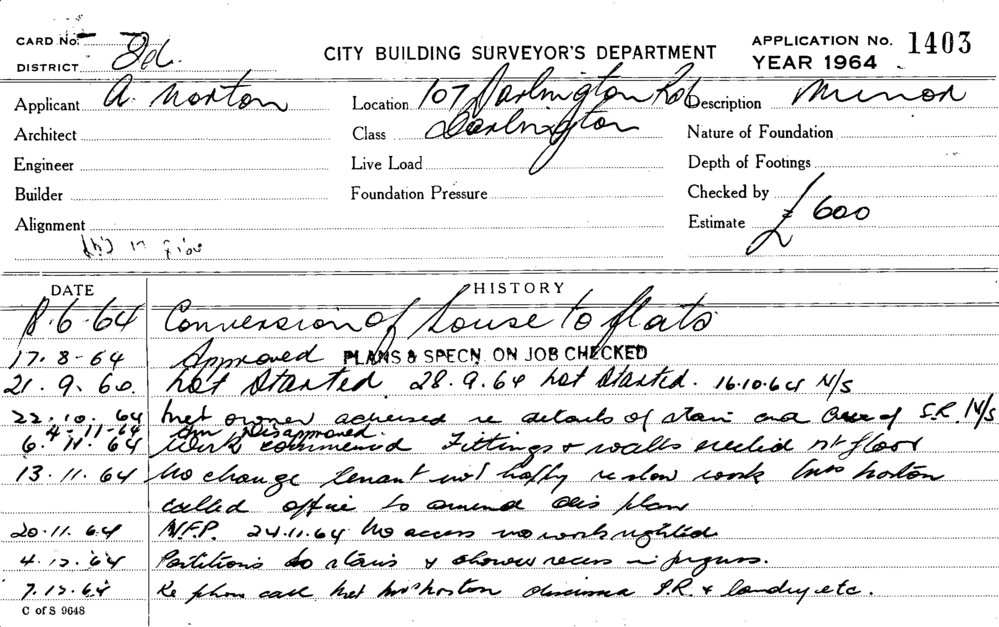 CARD No.
DISTRICT
CITY BUILDING SURVEYOR'S DEPARTMENT
APPLICATION No. 1403
YEAR 1964
Applicant A. Norton
Location 107 Darlington Rd
Description Minor
Architect
Class Darlington
Nature of Foundation
Engineer
Live Load
Depth of Footings
Builder
Foundation Pressure
Checked by
Alignment
Estimate £ 600
DATE
HISTORY
18.6.64 Conversion of house to flats
17.8-64 Approved PLANS & SPECN. ON JOB CHECKED
21.9.60. Not Started 28.9.64 Not Started. 16.10.64 N/S
22.10.64 Met owner advised re details of stair and of S.R. N/S
4-11-64 Disapproved.
6.11.64 Work commenced Fittings & walls erected 1st floor
13.11.64 No change tenant not happy re slow work Mrs Norton
called office to amend plan
20.11.64 N.F.P. 24.11.64 No access no work sighted
4.12.64 Partitions to stairs & shower recess in progress.
7.12.64 Re phone call Met Mrs Norton discussed S.R. & laundry etc.
C of S 9648